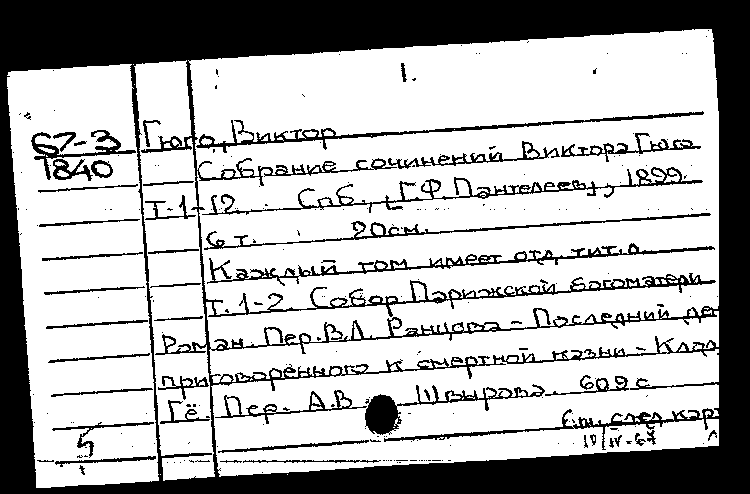 1.
67-3 Гюго, Виктор
1840 Собрание сочинений Виктора Гюго
Т.1-12. Спб., [Г.Ф. Пантелеев], 1899.
6 т. 20см.
Каждый том имеет отд. тит. л.
Т.1-2. Собор Парижской богоматери
Роман. Пер. В.Л. Ранцова - Последний ден
приговорённого к смертной казни - Клод
Гё. Пер. А.В Швырова. 609 с
См. след карт
5 IV-67